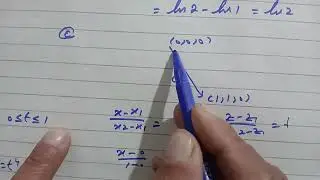 = ln 2 - ln 1 = ln 2
(0,0,0)
C
(1,1,0)
0≤t≤1
x-x₁ / x₂-x₁ =
z-z₁ / z₂-z₁ = t
x-0